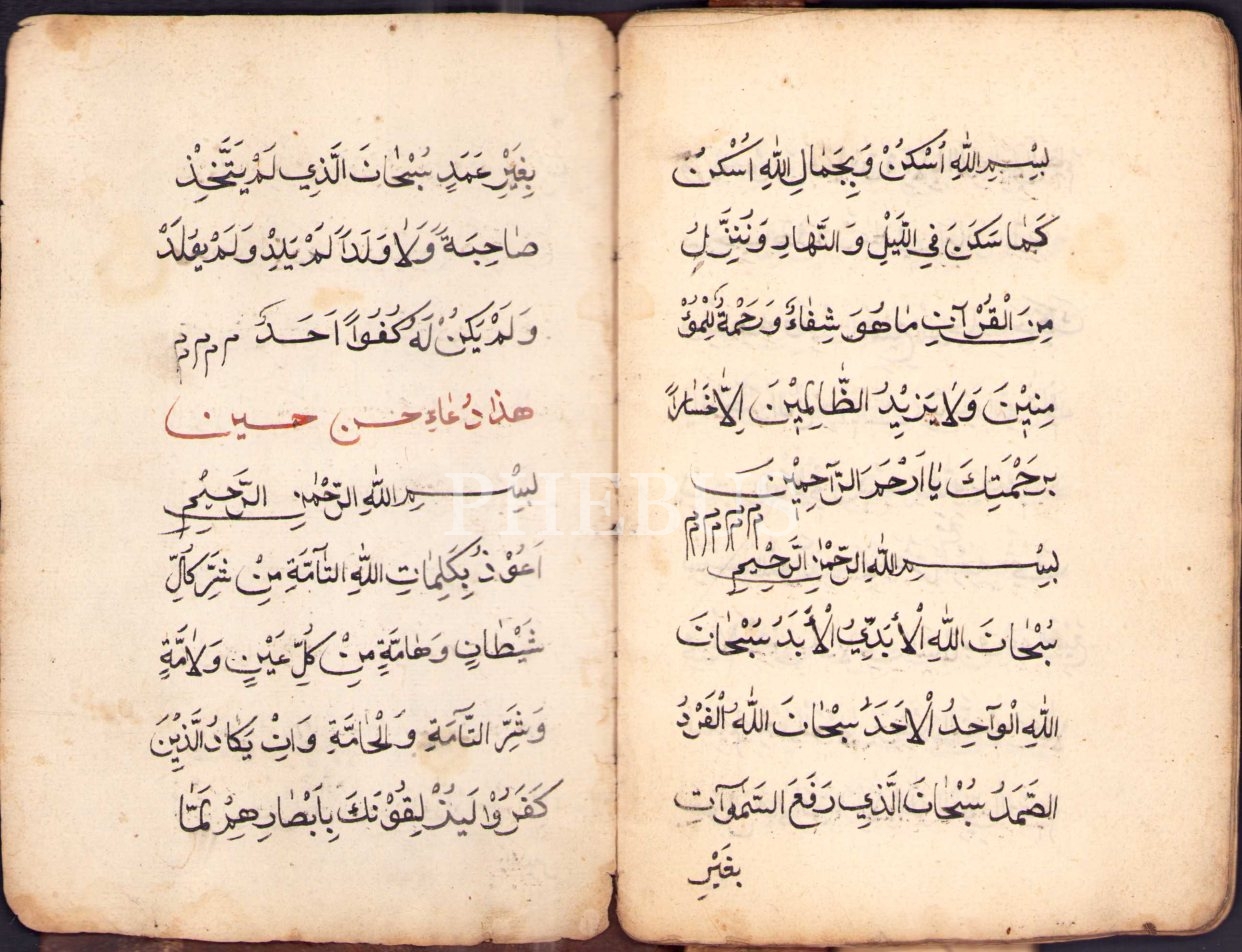 بِسْمِ اللّٰهِ اُسْكُنْ وَبِجَمٰالِ اللّٰهِ اُسْكُنْ
كَمٰا سَكَنَ فِي اللَّيْلِ وَ النَّهٰارِ وَنُنَزِّلُ
مِنَ الْقُرْآنِ مٰا هُوَ شِفٰاءٌ وَرَحْمَةٌ لِلْمُؤْ
مِنِيْنَ وَلٰا يَزِيْدُ الظّٰالِمِيْنَ اِلّٰا خَسٰاراً
بِرَحْمَتِكَ يٰا اَرْحَمَ الرّٰاحِمِيْنَ
م م م م م
بِسْمِ اللّٰهِ الرَّحْمٰنِ الرَّحِيْمِ
سُبْحٰانَ اللّٰهِ الْأَبَدِّيُ الْأَبَدُ سُبْحٰانَ
اللّٰهِ الْوٰاحِدُ الْاَحَدُ سُبْحٰانَ اللّٰهُ الْفَرْدُ
الصَّمَدُ سُبْحٰانَ الَّذِي رَفَعَ السَّمٰوٰاتِ
بِغَيْرِ
بِغَيْرِ عَمَدٍ سُبْحٰانَ الَّذِي لَمْ يَتَّخِذْ
صٰاحِبَةً وَلٰا وَلَداً لَمْ يَلِدْ وَلَمْ يُوْلَدْ
وَلَمْ يَكُنْ لَهُ كُفُواً اَحَدٌ م م م م
هذا دُعٰاءِ حسن حسين
بِسْمِ اللّٰهِ الرَّحْمٰنِ الرَّحِيْمِ
اَعُوْذُ بِكَلِمٰاتِ اللّٰهِ التّٰآمَّةِ مِنْ شَرِّ كُلِّ
شَيْطٰانٍ وَهٰامَّةٍ مِنْ كُلِّ عَيْنٍ وَلٰامَّةٍ
وَشَرِّ التّٰآمَّةِ وَالْحٰامَّةِ وَاِنْ يَكٰادُ الَّذِيْنَ
كَفَرُوْا لَيُزْلِقُوْنَكَ بِاَبْصٰارِهِمْ لَمّٰا
PHEBUS